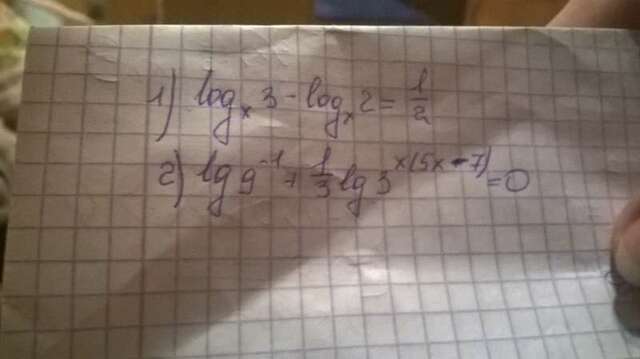 1) log_x 3 - log_x 2 = 1/2
2) lg 9^-1 + 1/3 lg 3^x(5x-7) = 0